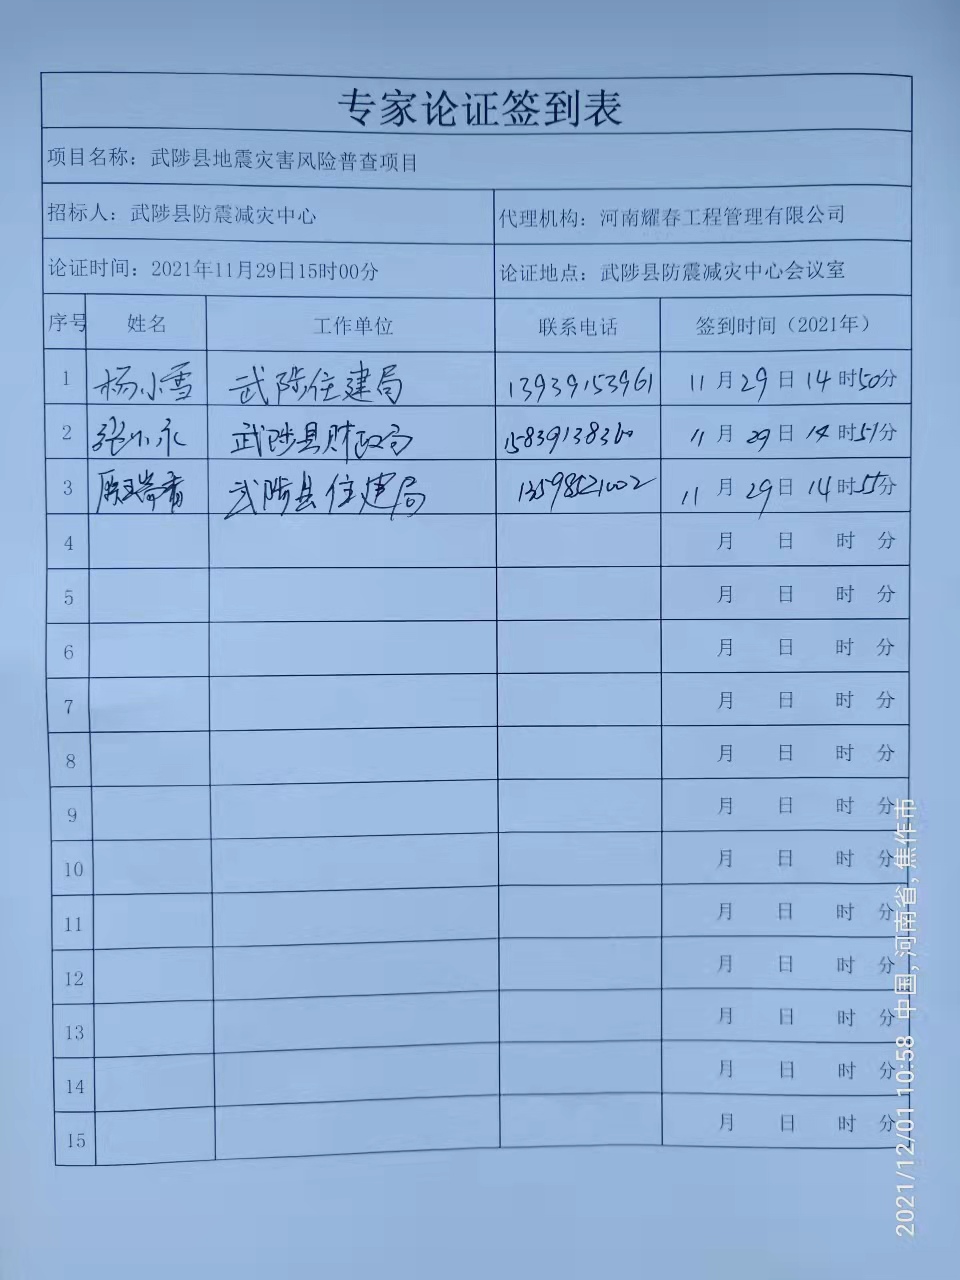 专家论证签到表
项目名称：武陟县地震灾害风险普查项目
招标人：武陟县防震减灾中心 代理机构：河南耀春工程管理有限公司
论证时间：2021年11月29日15时00分 论证地点：武陟县防震减灾中心会议室
序号 姓名 工作单位 联系电话 签到时间（2021年）
1 杨小雪 武陟住建局 13939153961 11月29日14时50分
2 张小永 武陟县财政局 15839138360 11月29日14时51分
3 瑞香 武陟县住建局 13598521002 11月29日14时55分
4 月 日 时 分
5 月 日 时 分
6 月 日 时 分
7 月 日 时 分
8 月 日 时 分
9 月 日 时 分
10 月 日 时 分
11 月 日 时 分
12 月 日 时 分
13 月 日 时 分
14 月 日 时 分
15 月 日 时 分
2021/12/01 10:58 中国,河南省,焦作市